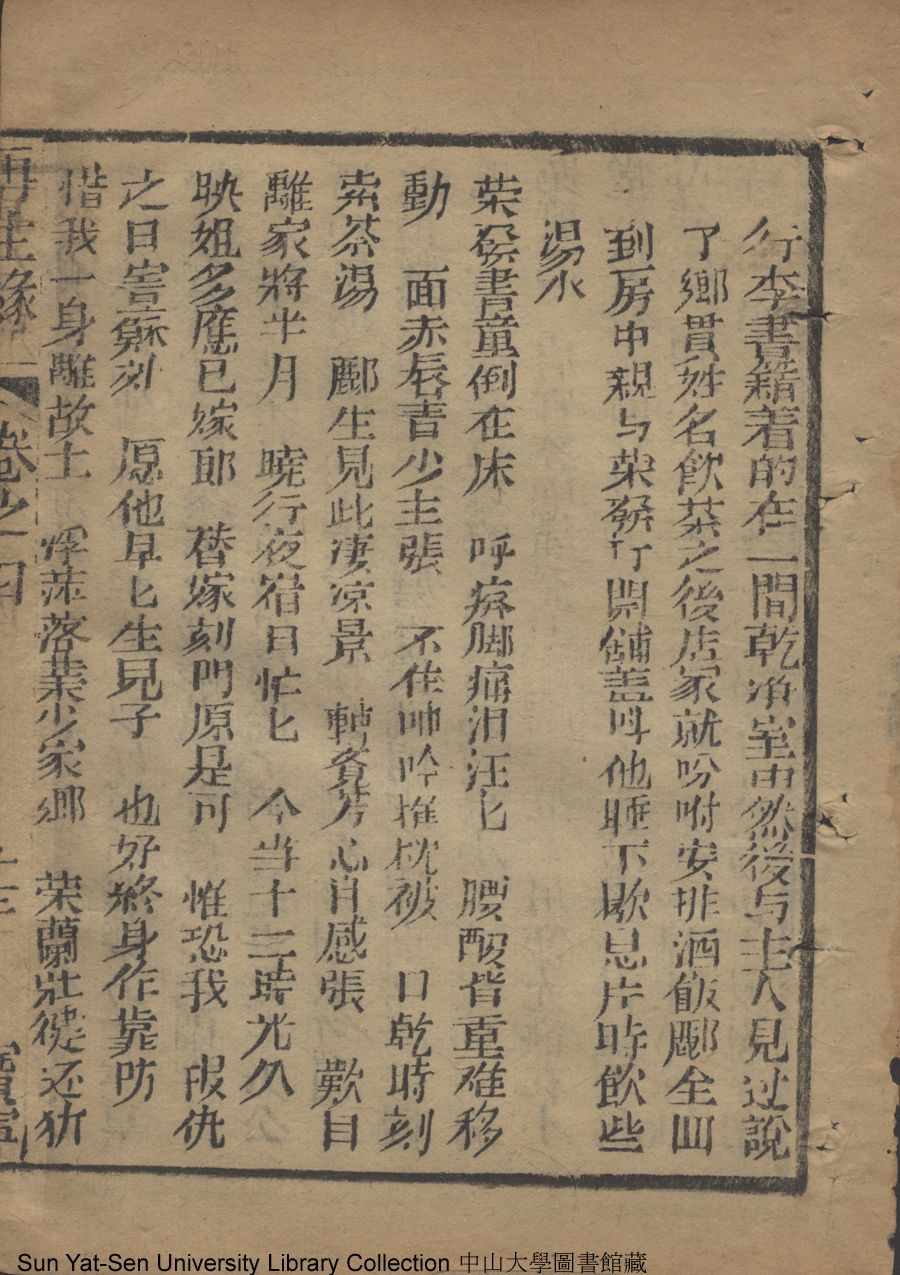 行李書籍着的在一間乾净室中然後与主人見过說
了鄉貫姓名飲茶之後店家就吩咐安排酒飯酈全回
到房中親与荣發打開鋪盖呌他睡下歇息片時飲些
湯水
荣發書童倒在床　呼疼脚痛泪汪匕　腰酸背重难移
動　面赤唇青少主張　不住呻吟推枕被　口乾時刻
索茶湯　酈生見此凄凉景　轉 芳心自感張　歎自
離家將半月　曉行夜宿日忙匕　今当十二時光久
映姐多應已嫁郎　替嫁刻門原是可　惟恐我　仇
之日害穌刻　愿他早匕生見子　也好終身作靠防
惜我一身離故土　浮萍落葉少家鄉　荣蘭壯健还犹
再生緣　卷之四
Sun Yat-Sen University Library Collection 中山大學圖書館藏